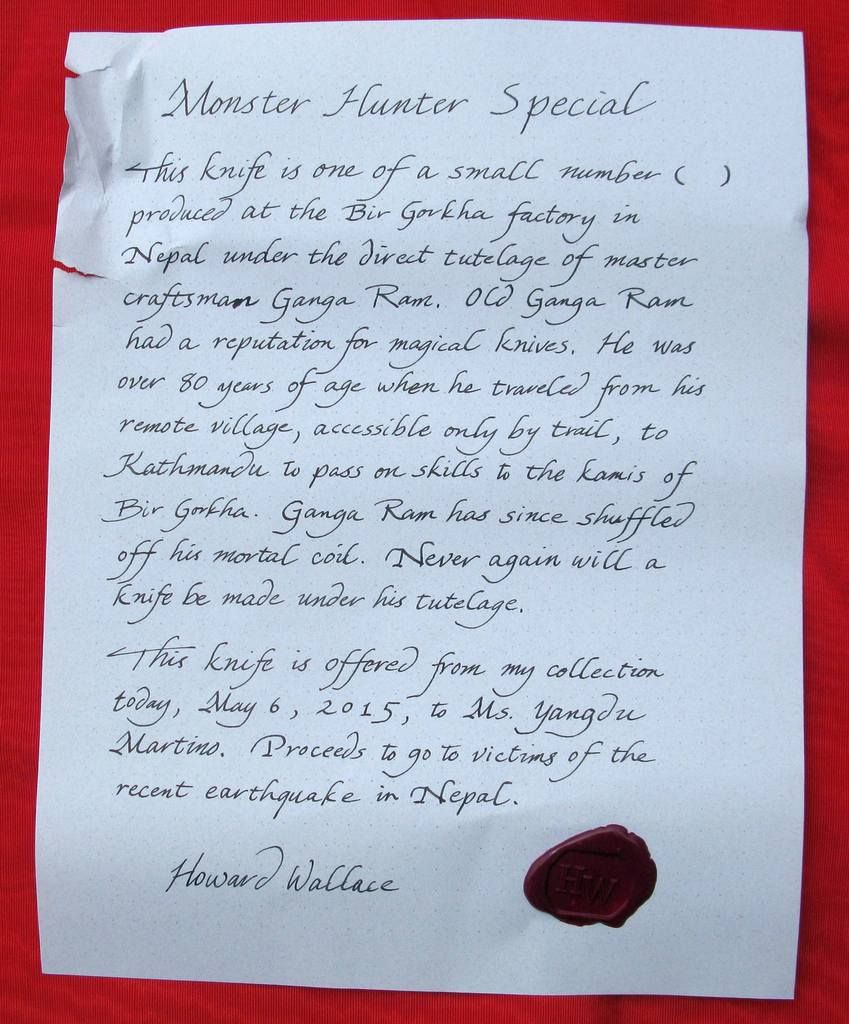 Monster Hunter Special
This knife is one of a small number ( )
produced at the Bir Gorkha factory in
Nepal under the direct tutelage of master
craftsman Ganga Ram. Old Ganga Ram
had a reputation for magical knives. He was
over 80 years of age when he traveled from his
remote village, accessible only by trail, to
Kathmandu to pass on skills to the kamis of
Bir Gorkha. Ganga Ram has since shuffled
off his mortal coil. Never again will a
knife be made under his tutelage.
This knife is offered from my collection
today, May 6, 2015, to Ms. Yangdu
Martino. Proceeds to go to victims of the
recent earthquake in Nepal.
Howard Wallace
HW